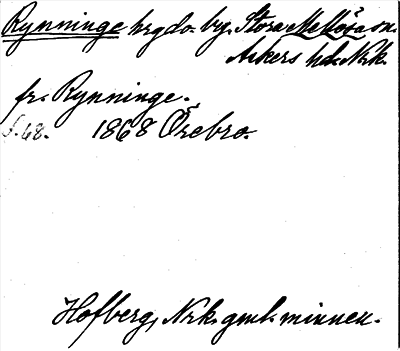 Rynninge hrgdo. by, Stora Mellösa sn.
Askers hd. Nrk.
fr. Rynninge.
S. 68. 1868 Örebro.
Hofberg, Nrk. gml. minnen.